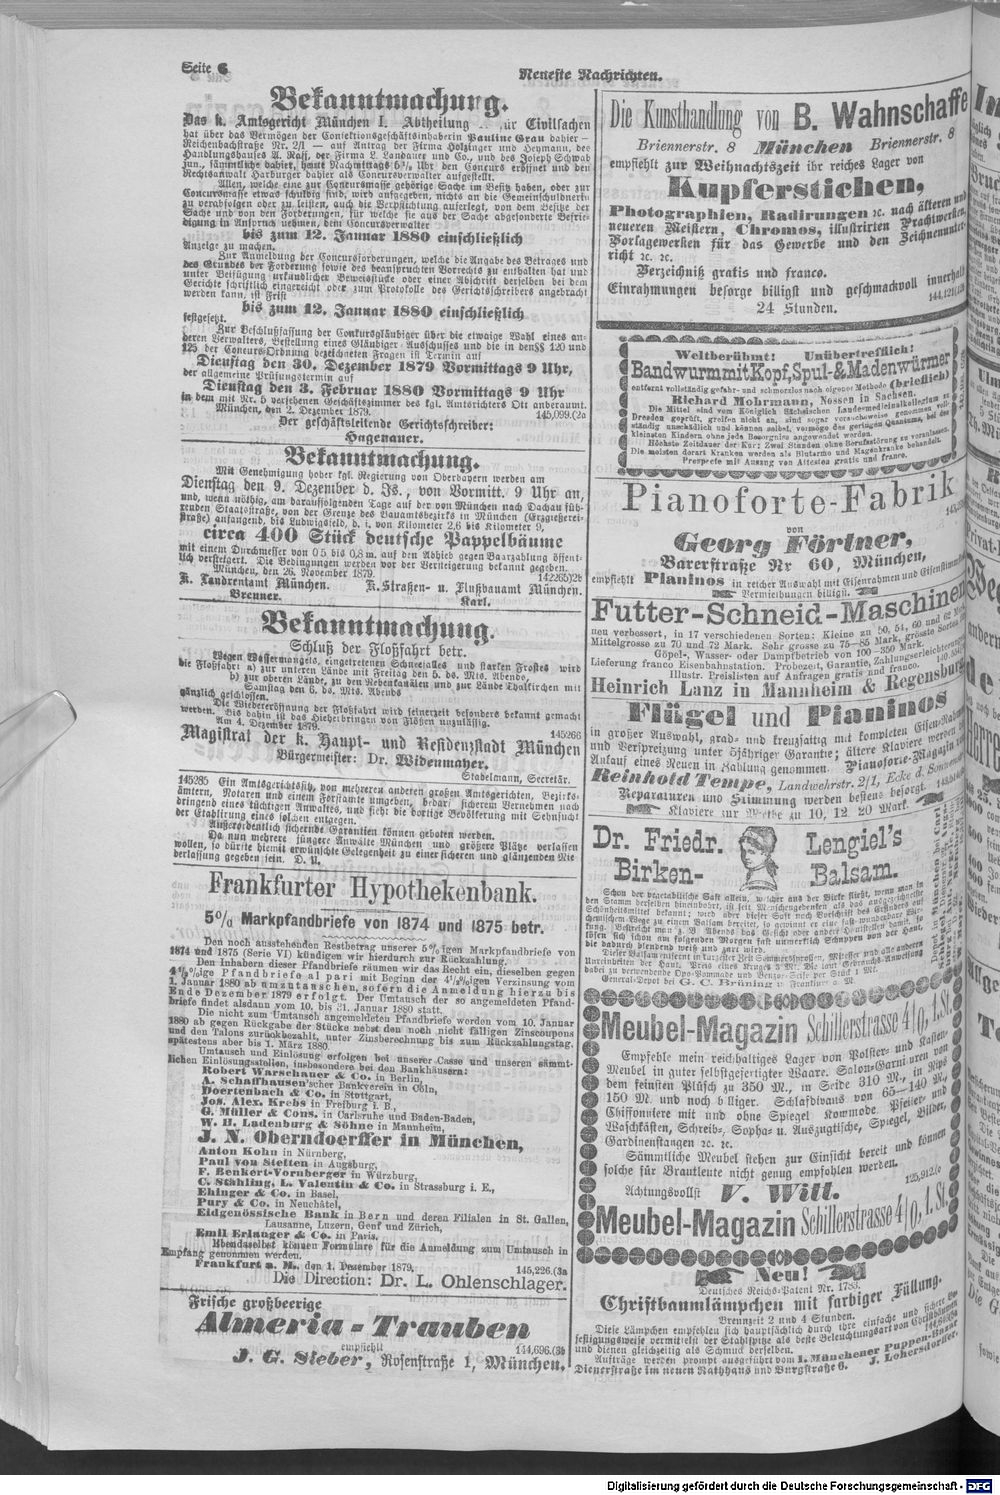 Seite 6
Neueste Nachrichten.
Bekanntmachung.
Das k. Amtsgericht München I. Abtheilung für Civilsachen
hat über das Vermögen der Confektionsgeschäftsinhaberin Pauline Grau dahier —
Reichenbachstraße Nr. 2/1 — auf Antrag der Firma Holzinger und Heymann, des
Handlungshauses A. Raff, der Firma L. Landauer und Co., und des Joseph Schwab
jun., sämmtliche dahier, heute Nachmittags 6¼ Uhr den Concurs eröffnet und den
Rechtsanwalt Harburger dahier als Concursverwalter aufgestellt.
Allen, welche eine zur Concursmasse gehörige Sache im Besitz haben, oder zur
Concursmasse etwas schuldig sind, wird aufgegeben, nichts an die Gemeinschuldnerin
zu verabfolgen oder zu leisten, auch die Verpflichtung auferlegt, von dem Besitze der
Sache und von den Forderungen, für welche sie aus der Sache abgesonderte Befrie-
digung in Anspruch nehmen, dem Concursverwalter
bis zum 12. Januar 1880 einschließlich
Anzeige zu machen.
Zur Anmeldung der Concursforderungen, welche die Angabe des Betrages und
des Grundes der Forderung sowie des beanspruchten Vorrechts zu enthalten hat und
unter Beifügung urkundlicher Beweisstücke oder einer Abschrift derselben bei dem
Gerichte schriftlich eingereicht oder zum Protokolle des Gerichtsschreibers angebracht
werden kann, ist Frist
bis zum 12. Januar 1880 einschließlich
festgesetzt.
Zur Beschlußfassung der Conkursgläubiger über die etwaige Wahl eines an-
deren Verwalters, Bestellung eines Gläubiger-Ausschusses und die in den §§ 120 und
125 der Concurs-Ordnung bezeichneten Fragen ist Termin auf
Dienstag den 30. Dezember 1879 Vormittags 9 Uhr,
der allgemeine Prüfungstermin auf
Dienstag den 3. Februar 1880 Vormittags 9 Uhr
in dem mit Nr. 5 versehenen Geschäftszimmer des kgl. Amtsrichters Ott anberaumt.
München, den 2. Dezember 1879. 145,099.(2a
Der geschäftsleitende Gerichtsschreiber:
Hagenauer.
Bekanntmachung.
Mit Genehmigung hoher kgl. Regierung von Oberbayern werden am
Dienstag den 9. Dezember d. Js., von Vormitt. 9 Uhr an,
und, wenn nöthig, am darauffolgenden Tage auf der von München nach Dachau füh-
renden Staatsstraße, von der Grenze des Bauamtsbezirks in München (Erzgießerei-
straße) anfangend, bis Ludwigsfeld, d. i. von Kilometer 2,6 bis Kilometer 9,
circa 400 Stück deutsche Pappelbäume
mit einem Durchmesser von 0 5 bis 0,8 m. auf den Abhieb gegen Baarzahlung öffent-
lich versteigert. Die Bedingungen werden vor der Versteigerung bekannt gegeben.
München, den 26. November 1879. 142265)2b
K. Landrentamt München. K. Straßen- u. Flußbauamt München.
Brenner. Karl.
Bekanntmachung.
Schluß der Floßfahrt betr.
Wegen Wassermangels, eingetretenen Schneefalles und starken Frostes wird
die Floßfahrt a) zur unteren Lände mit Freitag den 5. ds. Mts. Abends,
b) zur oberen Lände, zu den Nebenkanälen und zur Lände Thalkirchen mit
Samstag den 6. ds. Mts. Abends
gänzlich geschlossen.
Die Wiedereröffnung der Floßfahrt wird seinerzeit besonders bekannt gemacht
werden. Bis dahin ist das Hieherbringen von Flößen unzulässig.
Am 4. Dezember 1879. 145266
Magistrat der k. Haupt- und Residenzstadt München
Bürgermeister: Dr. Widenmayer.
Stadelmann, Secretär.
145285 Ein Amtsgerichtssitz, von mehreren anderen großen Amtsgerichten, Bezirks-
ämtern, Notaren und einem Forstamte umgeben, bedarf sicherem Vernehmen nach
dringend eines tüchtigen Anwaltes, und sieht die dortige Bevölkerung mit Sehnsucht
der Etablirung eines solchen entgegen.
Außerordentlich sichernde Garantien können geboten werden.
Da nun mehrere jüngere Anwälte München und größere Plätze verlassen
wollen, so dürfte hiemit erwünschte Gelegenheit zu einer sicheren und glänzenden Nie
derlassung gegeben sein. D. U.
Frankfurter Hypothekenbank.
5% Markpfandbriefe von 1874 und 1875 betr.
Den noch ausstehenden Restbetrag unserer 5%igen Markpfandbriefe von
1874 und 1875 (Serie VI) kündigen wir hierdurch zur Rückzahlung.
Den Inhabern dieser Pfandbriefe räumen wir das Recht ein, dieselben gegen
4½%ige Pfandbriefe al pari mit Beginn der 4½%igen Verzinsung vom
1. Januar 1880 ab umzutauschen, sofern die Anmeldung hierzu bis
Ende Dezember 1879 erfolgt. Der Umtausch der so angemeldeten Pfand-
briefe findet alsdann vom 10. bis 31. Januar 1880 statt.
Die nicht zum Umtausch angemeldeten Pfandbriefe werden vom 10. Januar
1880 ab gegen Rückgabe der Stücke nebst den noch nicht fälligen Zinscoupons
und den Talons zurückbezahlt, unter Zinsberechnung bis zum Rückzahlungstag,
spätestens aber bis 1. März 1880.
Umtausch und Einlösung erfolgen bei unserer Casse und unseren sämmt-
lichen Einlösungsstellen, insbesondere bei den Bankhäusern:
Robert Warschauer & Co. in Berlin,
A. Schaffhausen'scher Bankverein in Cöln,
Doertenbach & Co. in Stuttgart,
Jos. Alex. Krebs in Freiburg i. B.,
G. Müller & Cons. in Carlsruhe und Baden-Baden,
W. H. Ladenburg & Söhne in Mannheim,
J. N. Oberndoerffer in München,
Anton Kohn in Nürnberg,
Paul von Stetten in Augsburg,
F. Benkert-Vornberger in Würzburg,
C. Stähling, L. Valentin & Co. in Strassburg i. E.,
Ehinger & Co. in Basel,
Pury & Co. in Neuchâtel,
Eidgenössische Bank in Bern und deren Filialen in St. Gallen,
Lausanne, Luzern, Genf und Zürich,
Emil Erlanger & Co. in Paris.
Ebendaselbst können Formulare für die Anmeldung zum Umtausch in
Empfang genommen werden.
Frankfurt a. M., den 1. Dezember 1879. 145,226.(3a
Die Direction: Dr. L. Ohlenschlager.
Frische großbeerige
Almeria-Trauben
empfiehlt 144,696.(3b
J. G. Sieber, Rosenstraße 1, München.
Die Kunsthandlung von B. Wahnschaffe
Briennerstr. 8 München Briennerstr. 8
empfiehlt zur Weihnachtszeit ihr reiches Lager von
Kupferstichen,
Photographien, Radirungen ꝛc. nach älteren und
neueren Meistern, Chromos, illustrirten Prachtwerken,
Vorlagewerken für das Gewerbe und den Zeichnenunter-
richt ꝛc. ꝛc.
Verzeichniß gratis und franco.
Einrahmungen besorge billigst und geschmackvoll innerhalb
24 Stunden. 144,121(12
Weltberühmt! Unübertrefflich!
Bandwurm mit Kopf, Spul- & Madenwürmer
entfernt vollständig gefahr- und schmerzlos nach eigener Methode (brieflich)
Richard Mohrmann, Nossen in Sachsen.
Die Mittel sind vom Königlich Sächsischen Landesmedicinalkollegium zu
Dresden geprüft, greifen nicht an, sind sogar versuchsweise genommen, bei voll-
ständig unschädlich und können selbst, vermöge des geringen Quantums, bei
kleinsten Kindern ohne jede Besorgniss angewendet werden.
Höchste Zeitdauer der Kur: Zwei Stunden ohne Berufsstörung zu veranlassen.
Die meisten derart Kranken werden als Blutarme und Magenkranke behandelt.
Prospecte mit Auszug von Attesten gratis und franco.
Pianoforte-Fabrik
von
Georg Förtner,
Barerstraße Nr 60, München,
empfiehlt Pianinos in reicher Auswahl mit Eisenrahmen und Eisenstimmstock
Vermiethungen billigst.
Futter-Schneid-Maschinen
neu verbessert, in 17 verschiedenen Sorten: Kleine zu 50, 54, 60 und 62 Mark
Mittelgrosse zu 70 und 72 Mark. Sehr grosse zu 75—85 Mark, grösste Sorten für
Göpel-, Wasser- oder Dampfbetrieb von 100—350 Mark.
Lieferung franco Eisenbahnstation. Probezeit, Garantie, Zahlungserleichterung
Illustr. Preislisten auf Anfragen gratis und franco.
Heinrich Lanz in Mannheim & Regensburg
Flügel und Pianinos
in großer Auswahl, grad- und kreuzsaitig mit kompleten Eisen-Rahmen
und Verspreizung unter 5jähriger Garantie; ältere Klaviere werden bei
Ankauf eines Neuen in Zahlung genommen. Pianoforte-Magazin von
Reinhold Tempe, Landwehrstr. 2/1, Ecke d. Sonnenstr.
Reparaturen und Stimmung werden bestens besorgt.
Klaviere zur Miethe zu 10, 12. 20 Mark.
Dr. Friedr. Lengiel's
Birken- Balsam.
Schon der vegetabilische Saft allein, welcher aus der Birke fließt, wenn man in
den Stamm derselben hineinbohrt, ist seit Menschengedenken als das ausgezeichnetste
Schönheitsmittel bekannt; wird aber dieser Saft nach Vorschrift des Erfinders auf
chemischem Wege zu einem Balsam bereitet, so gewinnt er eine fast wunderbare Wir-
kung. Bestreicht man z. B. Abends das Gesicht oder andere Hautstellen damit, so
lösen sich schon am folgenden Morgen fast unmerklich Schuppen von der Haut,
die dadurch blendend weiß und zart wird.
Dieser Balsam entfernt in kürzester Zeit Sommersprossen, Mitesser und alle anderen
Unreinheiten der Haut. Preis eines Kruges 3 M. Die laut Gebrauchs-Anweisung
dabei zu verwendende Opo-Pommade und Benzo-Seife per Stück 1 M.
General-Depot bei G. C. Brüning in Frankfurt a. M.
Meubel-Magazin Schillerstrasse 4/0, I. St.
Empfehle mein reichhaltiges Lager von Polster- und Kasten-
Meubel in guter selbstgefertigter Waare. Salon-Garnituren von
dem feinsten Plüsch zu 350 M., in Seide 310 M., in Rips
150 M. und noch billiger. Schlafdivans von 65—140 M.,
Chiffonniere mit und ohne Spiegel Kommode, Pfeiler- und
Waschkästen, Schreib-, Sopha- u. Auszugtische, Spiegel, Bilder,
Gardinenstangen ꝛc. ꝛc.
Sämmtliche Meubel stehen zur Einsicht bereit und können
solche für Brautleute nicht genug empfohlen werden.
Achtungsvollst V. Will. 125,912.(o
Meubel-Magazin Schillerstrasse 4/0, I. St.
Neu!
Deutsches Reichs-Patent Nr. 1783.
Christbaumlämpchen mit farbiger Füllung.
Brennzeit 2 und 4 Stunden.
Diese Lämpchen empfehlen sich hauptsächlich durch ihre einfache und sichere Be-
festigungsweise vermittelst der Stahlspitze als beste Beleuchtungsart von Christbäumen
und dienen gleichzeitig als Schmuck derselben.
Aufträge werden prompt ausgeführt vom 1. Münchener Puppen-Bazar
Dienerstraße im neuen Rathhaus und Burgstraße 6. J. Lohersdorfer.
Digitalisierung gefördert durch die Deutsche Forschungsgemeinschaft - DFG